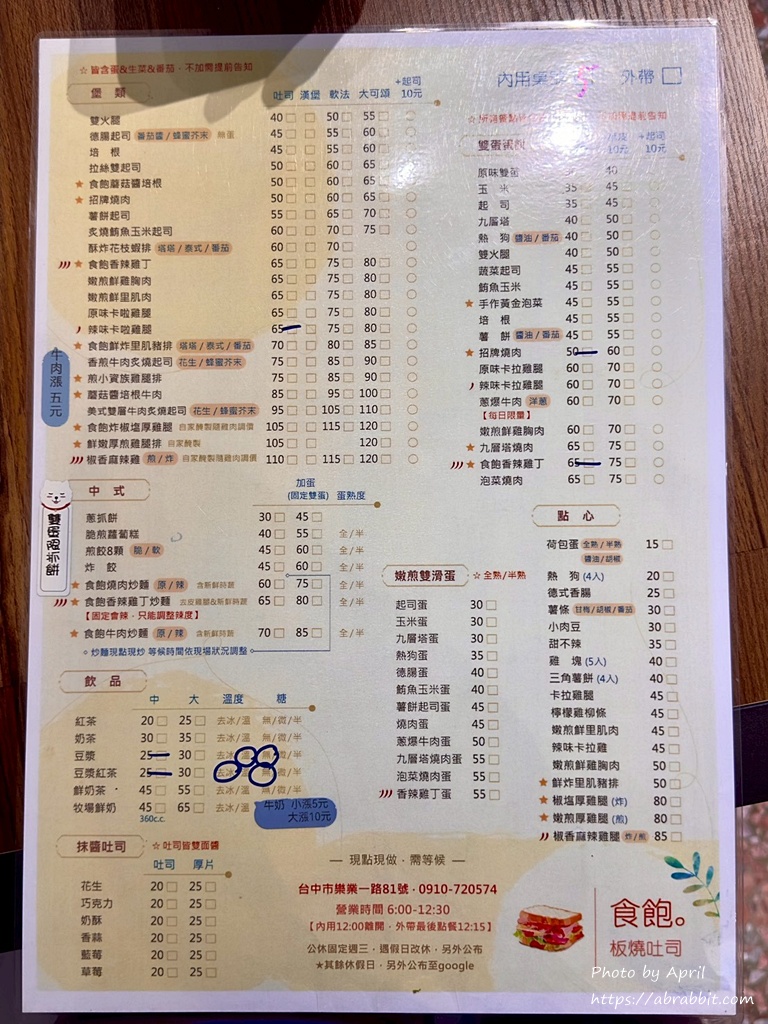 ☆ 皆含蛋&生菜&番茄，不加需提前告知
堡 類 吐司 漢堡 軟法 大可頌 +起司10元
雙火腿 40 50 55
德腸起司 番茄醬/蜂蜜芥末 無蛋 45 55 60
培 根 45 55 60
拉絲雙起司 50 60 65
★ 食飽蘑菇醬培根 50 60 65
★ 招牌燒肉 50 60 65
薯餅起司 55 65 70
炙燒鮪魚玉米起司 60 70 75
酥炸花枝蝦排 塔塔/泰式/番茄 60 70
★ 食飽香辣雞丁 65 75 80
嫩煎鮮雞胸肉 65 75 80
嫩煎鮮里肌肉 65 75 80
原味卡啦雞腿 65 75 80
辣味卡啦雞腿 65 75 80
★ 食飽鮮炸里肌豬排 塔塔/泰式/番茄 70 80 85
香煎牛肉炙燒起司 花生/蜂蜜芥末 75 85 90
★ 煎小資族雞腿排 75 85 90
★ 蘑菇醬培根牛肉 85 95 100
美式雙層牛肉炙燒起司 花生/蜂蜜芥末 95 105 110
★ 食飽炸椒塩厚雞腿 自家醃製隨雞肉調價 105 115 120
★ 鮮嫩厚煎雞腿排 自家醃製 105 120
★ 椒香麻辣雞 煎/炸 自家醃製隨雞肉調價 110 115 120
牛肉漲五元
內用桌 外帶
雙蛋蛋 10元 +起司10元
原味雙蛋 30 40
玉 米 35 45
起 司 35 45
九層塔 40 50
熱 狗 醬油/番茄 40 50
雙火腿 40 50
蔬菜起司 45 55
鮪魚玉米 45 55
★ 手作黃金泡菜 45 55
培 根 45 55
薯 餅 醬油/番茄 45 55
★ 招牌燒肉 50 60
原味卡拉雞腿 60 70
辣味卡拉雞腿 60 70
蔥爆牛肉 洋蔥 60 70
【每日限量】
嫩煎鮮雞胸肉 60 70
★ 九層塔燒肉 65 75
★ 食飽香辣雞丁 65 75
泡菜燒肉 65 75
中 式 加蛋(固定雙蛋) 蛋熟度
雙蛋蔥抓餅
蔥抓餅 30 45
脆煎蘿蔔糕 40 55 全/半
煎餃8顆 脆/軟 45 60 全/半
炸 餃 45 60 全/半
★ 食飽燒肉炒麵 原/辣 含新鮮時蔬 60 75 全/半
★ 食飽香辣雞丁炒麵 去皮雞腿&新鮮時蔬 65 80 全/半
【固定會辣，只能調整辣度】
★ 食飽牛肉炒麵 原/辣 含新鮮時蔬 70 85 全/半
炒麵現點現炒 等候時間依現場狀況調整
飲 品 中 大 溫度 糖
紅茶 20 25 去冰/溫 無/微/半
奶茶 30 35 去冰/溫 無/微/半
豆漿 25 30 去冰/溫 無/微/半
豆漿紅茶 25 30 去冰/溫 無/微/半
鮮奶茶 45 55 去冰/溫 無/微/半
牧場鮮奶 45 65 去冰/溫
360c.c.
牛奶 小漲5元
大漲10元
抹醬吐司 ☆ 吐司皆雙面醬
吐司 厚片
花生 20 25
巧克力 20 25
奶酥 20 25
香蒜 20 25
藍莓 20 25
草莓 20 25
嫩煎雙滑蛋 ☆ 全熟/半熟
起司蛋 30
玉米蛋 30
九層塔蛋 30
熱狗蛋 35
德腸蛋 40
鮪魚玉米蛋 40
薯餅起司蛋 40
燒肉蛋 45
蔥爆牛肉蛋 50
九層塔燒肉蛋 55
泡菜燒肉蛋 55
香辣雞丁蛋 55
點 心
荷包蛋 全熟/半熟 醬油/胡椒 15
熱 狗 (4人) 20
德式香腸 25
薯條 甘梅/胡椒/番茄 30
小肉豆 30
甜不辣 35
雞 塊 (5人) 40
三角薯餅 (4人) 40
卡拉雞腿 45
檸檬雞柳條 45
嫩煎鮮里肌肉 45
辣味卡拉雞 45
嫩煎鮮雞胸肉 50
★ 鮮炸里肌豬排 50
★ 椒塩厚雞腿 (炸) 80
★ 嫩煎厚雞腿 (煎) 80
椒香麻辣雞腿 炸/煎 85
— 現點現做，需等候 —
台中市樂業一路81號・0910-720574
營業時間 6:00-12:30
【內用12:00離開，外帶最後點餐12:15】
公休固定週三，遇假日改休，另外公布
★其餘休假日，另外公布至google
食飽。
板燒吐司
Photo by April
https://abrabbit.com